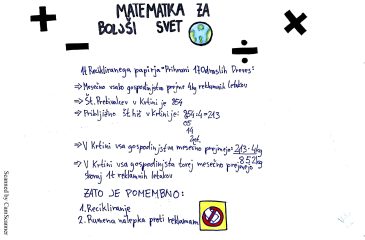 MATEMATIKA ZA
BOLJŠI SVET
1t Recikliranega papirja = Prihrani 17 Odraslih Dreves:
⇒ Mesečno vsako gospodinjstvo prejme 4kg reklamnih letakov
⇒ Št. Prebivalcev v Krtini je 854
⇒ Približno št. hiš v Krtini je: 854:4=213
05
14
2 ost.
⇒ V Krtini vsa gospodinjstva mesečno prejmejo: 213·4kg
852kg
⇒ V Krtini vsa gospodinjstva torej mesečno prejmejo
skoraj 1t reklamnih letakov
ZATO JE POMEMBNO:
1. Recikliranje
2. Rumena nalepka proti reklamam
Scanned by CamScanner